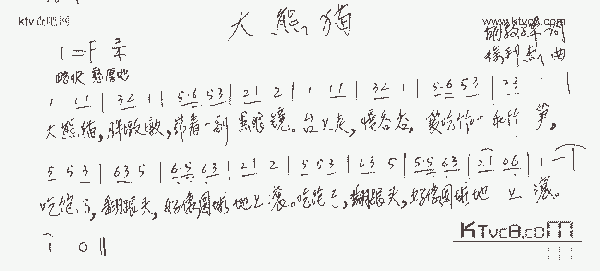 ktvc8歌谱网
www.ktvc8.com
大熊猫
词
1=F 2/4
保利 曲
略快 憨厚地
1 1 1 | 3 2 1 | 5·6 5 3 | 2 1 2 | 1 1 1 | 3 2 1 | 5·6 5 3 |
大熊猫，胖墩墩，带着一副黑眼镜。台上走，慢吞吞，爱吃竹笋，
5 5 3 | 6 3 5 | 6·5 6 3 | 2 1 2 | 5 5 3 | 6 3 5 | 5·5 6 3 | 2 1 0 6 | 1 —
吃饱了，翻跟头，好像圆球地上滚。吃饱了，翻跟头，好像圆球地上滚。
KTVC8.COM
1 0 ‖